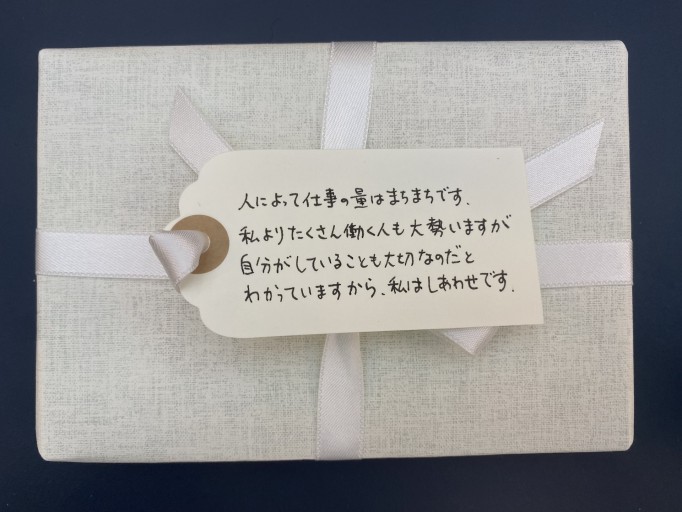 人によって仕事の量はまちまちです、
私よりたくさん働く人も大勢いますが
自分がしていることも大切なのだと
わかっていますから、私はしあわせです。